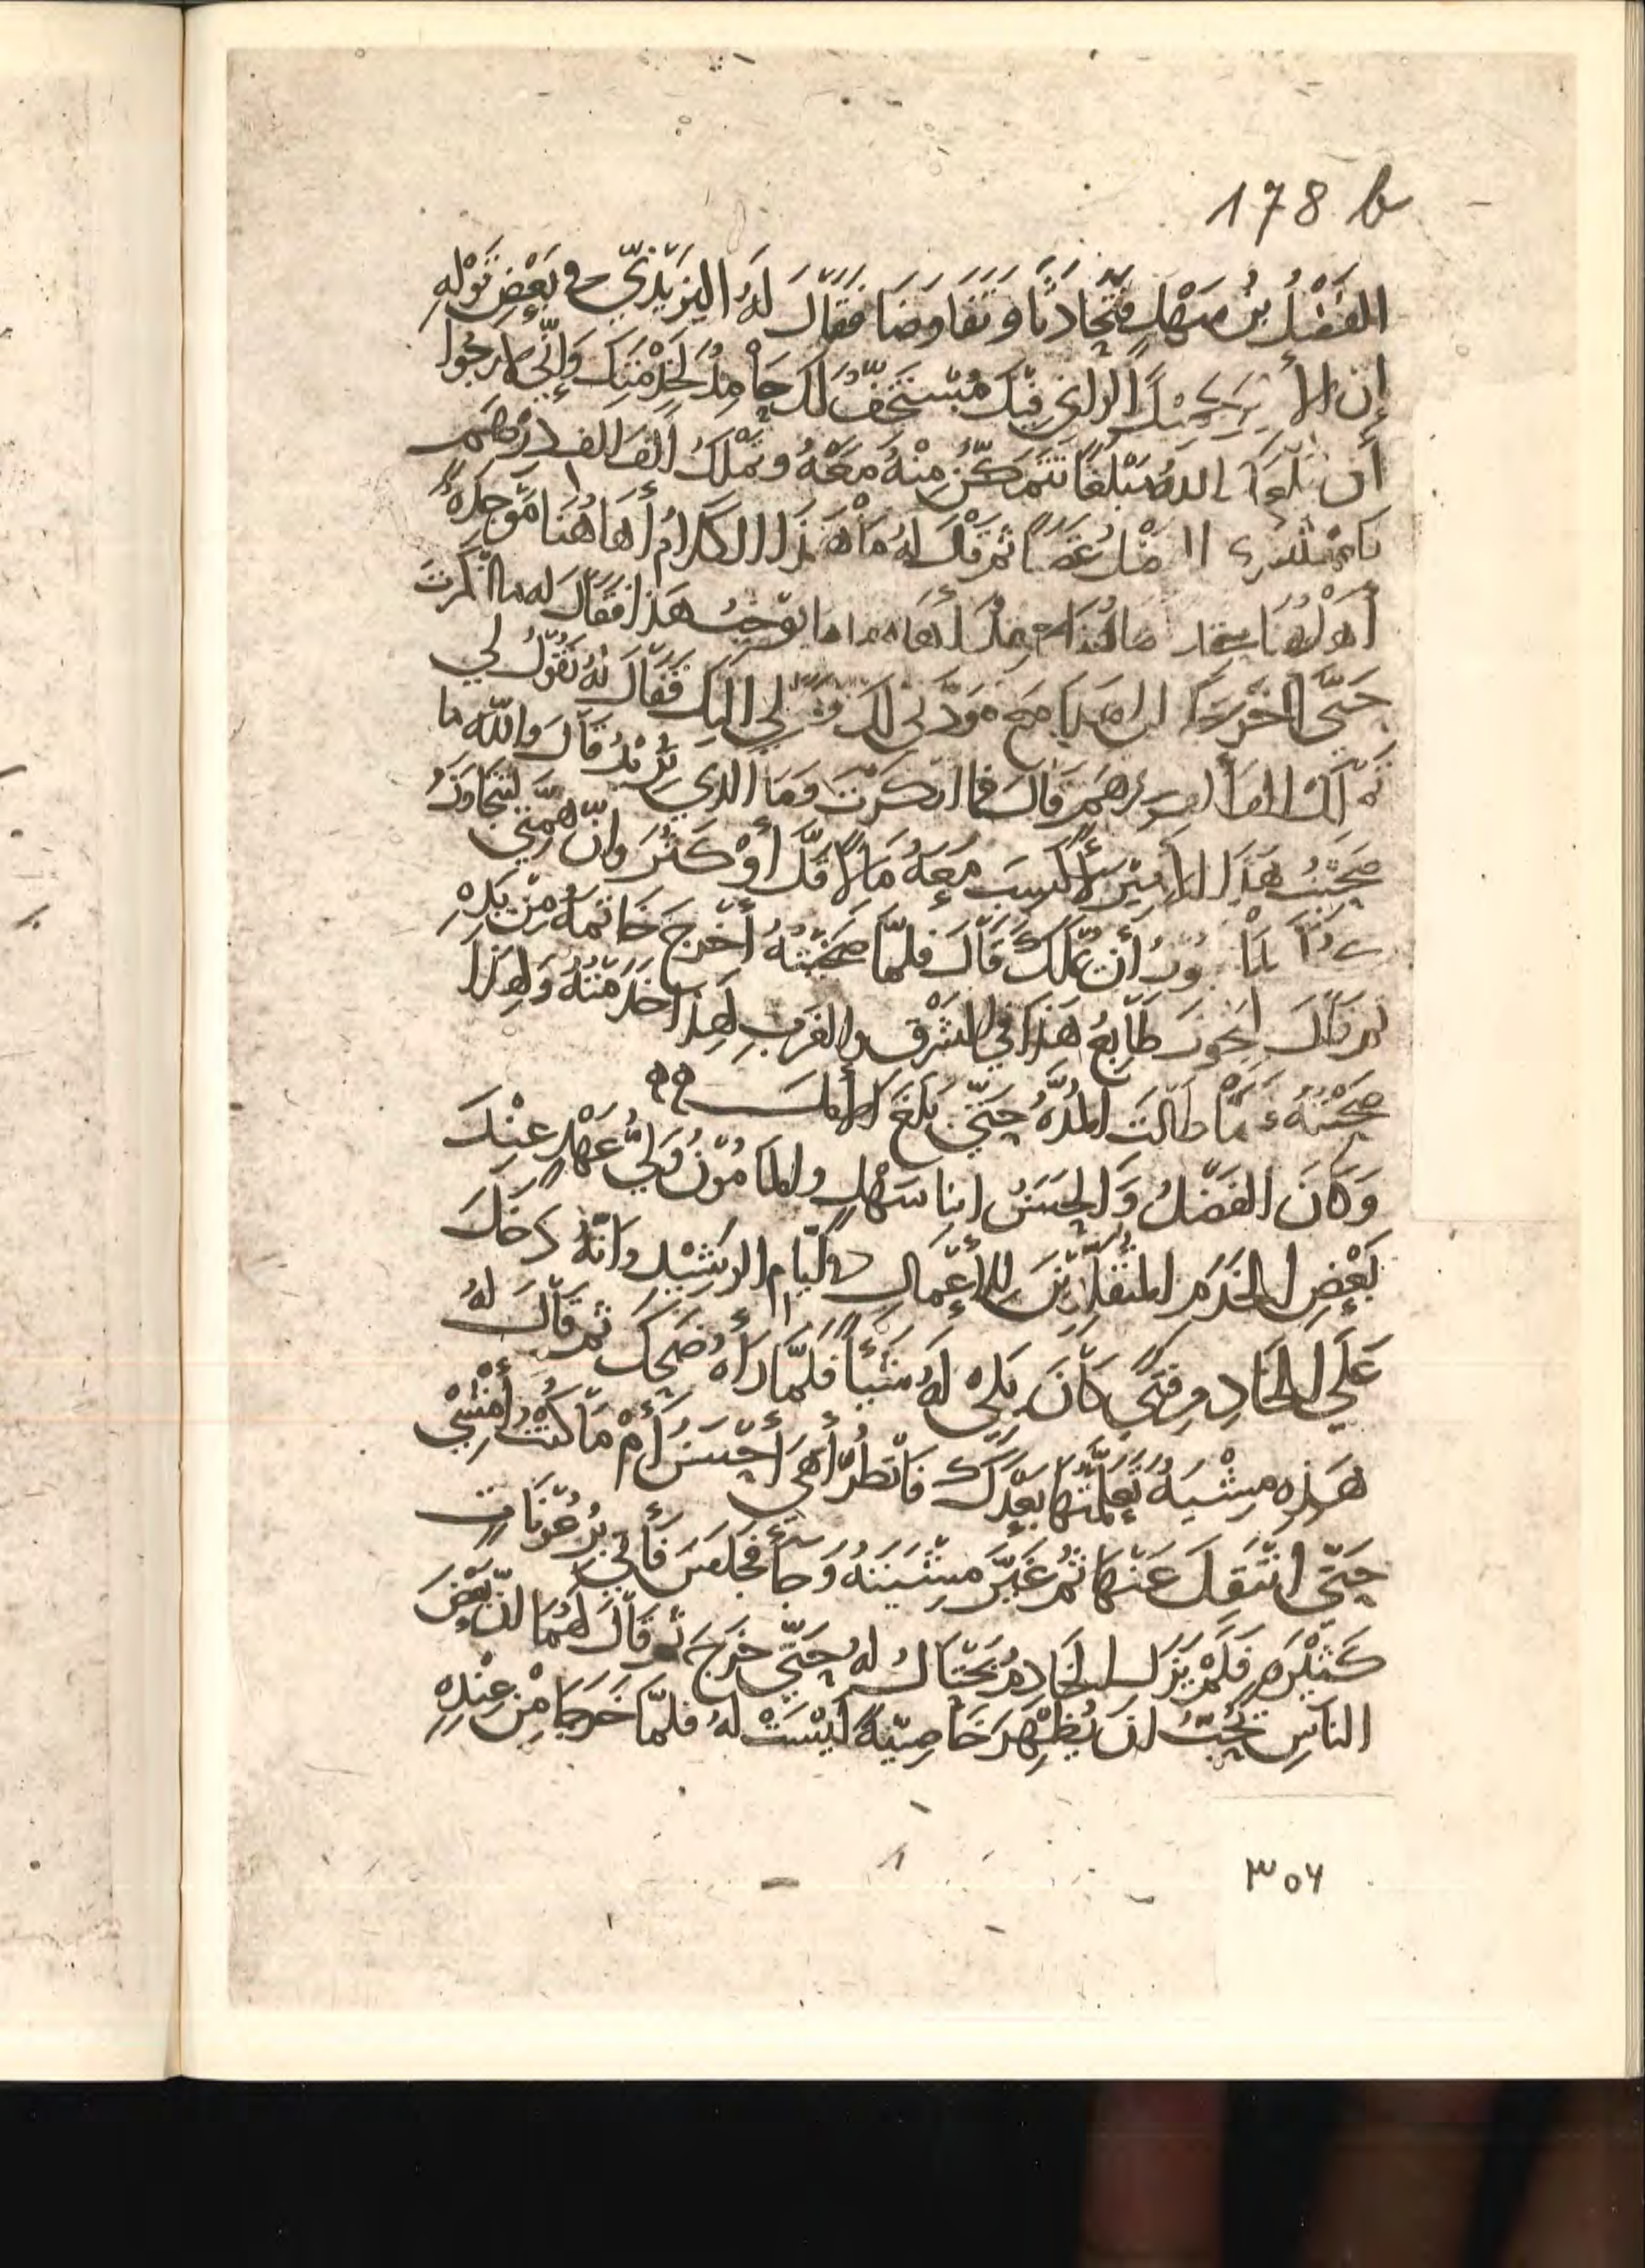 178 b
الفَضْلُ بنُ سَهْلٍ فتَحادثا وتَفاوضَا فقَالَ لَهُ اليَزيْديّ في بَعْضِ قَوْلهِ
إن الأ جَمِيْلُ الرأي فيْكَ مُسْتَخِفٌّ لَكَ حَامِدٌ لخِدْمَتِكَ وَإنّي لأرجُوا
أن الله مَبْلغًا تَتَمكّنُ مِنْهُ مَعَهُ وتَمْلكُ ألفَ الف درْهَم
غَضبًا ثم قالَ لهُ مَا هَذا الكلامُ أهَاهُنا مَوْجِدَةٌ
أهَاهُنا هاهُنا ما يُوْجبُ هَذا فقَالَ له ما أنكَرْتَ
حَتّى اخْرجَكَ الى مَعَ مَودّتي لكَ لي اليكَ فقَالَ لهُ تقُوْلُ لي
ألف دِرْهَم قالَ فما انكرْتَ ومَا الذي تُرِيْدُ قَالَ واللهِ ما
صَحِبْتُ هَذا الأميْرَ لأكسِبَ مَعَهُ مَالاً قَلّ أوْ كَثُرَ وإنّ همّتي لتَتجاوَزُ
أن تملكَ قَالَ فلمّا صَحِبْتَهُ أخْرجَ خَاتمهُ مِنْ يَدِهِ
ثم قالَ ليَجُوزَ طَابَعُ هَذا في الشرْقِ والغَربِ لِهَذا خدَمْتُهُ وَلِهَذا
صَحِبْتُهُ فمَا طَالَت المُدّةُ حتّى بَلغَ
وَكانَ الفَضْلُ وَالحَسَنُ ابنا سَهْلٍ والمَأمُوْنُ وَليُّ عَهْدٍ عِنْدَ
بَعْضِ الخَدَمِ المتقَلّدِيْنَ للأعْمَالِ في أيّامِ الرشِيْدِ وانّهُ دَخلَ
عَلَى الخَادِمِ فتًى كانَ يَلِي لهُ شَيْئاً فلمّا رآهُ ضَحكَ ثم قَالَ لهُ
هَذِهِ مِشْيَةٌ تَعَلّمْتُها بَعْدَكَ فانْظُرْ أهيَ أحْسَنُ أمْ مَا كُنْتُ أمْشِي
حَتّى انتَقلَ عَنْها ثم غَيّرَ مِشْيَتَهُ وَجَأَ فجَلسَ فأتى بِرُعُوْنَاتٍ
كَثيْرَةٍ فَلَمْ يَزَل الخَادِمُ يَحْتَالُ لهُ حَتّى خرَجَ ثم قَالَ لهُمَا انّ بَعْضَ
الناسِ يُحِبُّ انْ يُظهِرَ خَاصيّةً ليْسَتْ لهُ فلمّا خَرجَا مِنْ عِنْدِهِ
٣٥٦